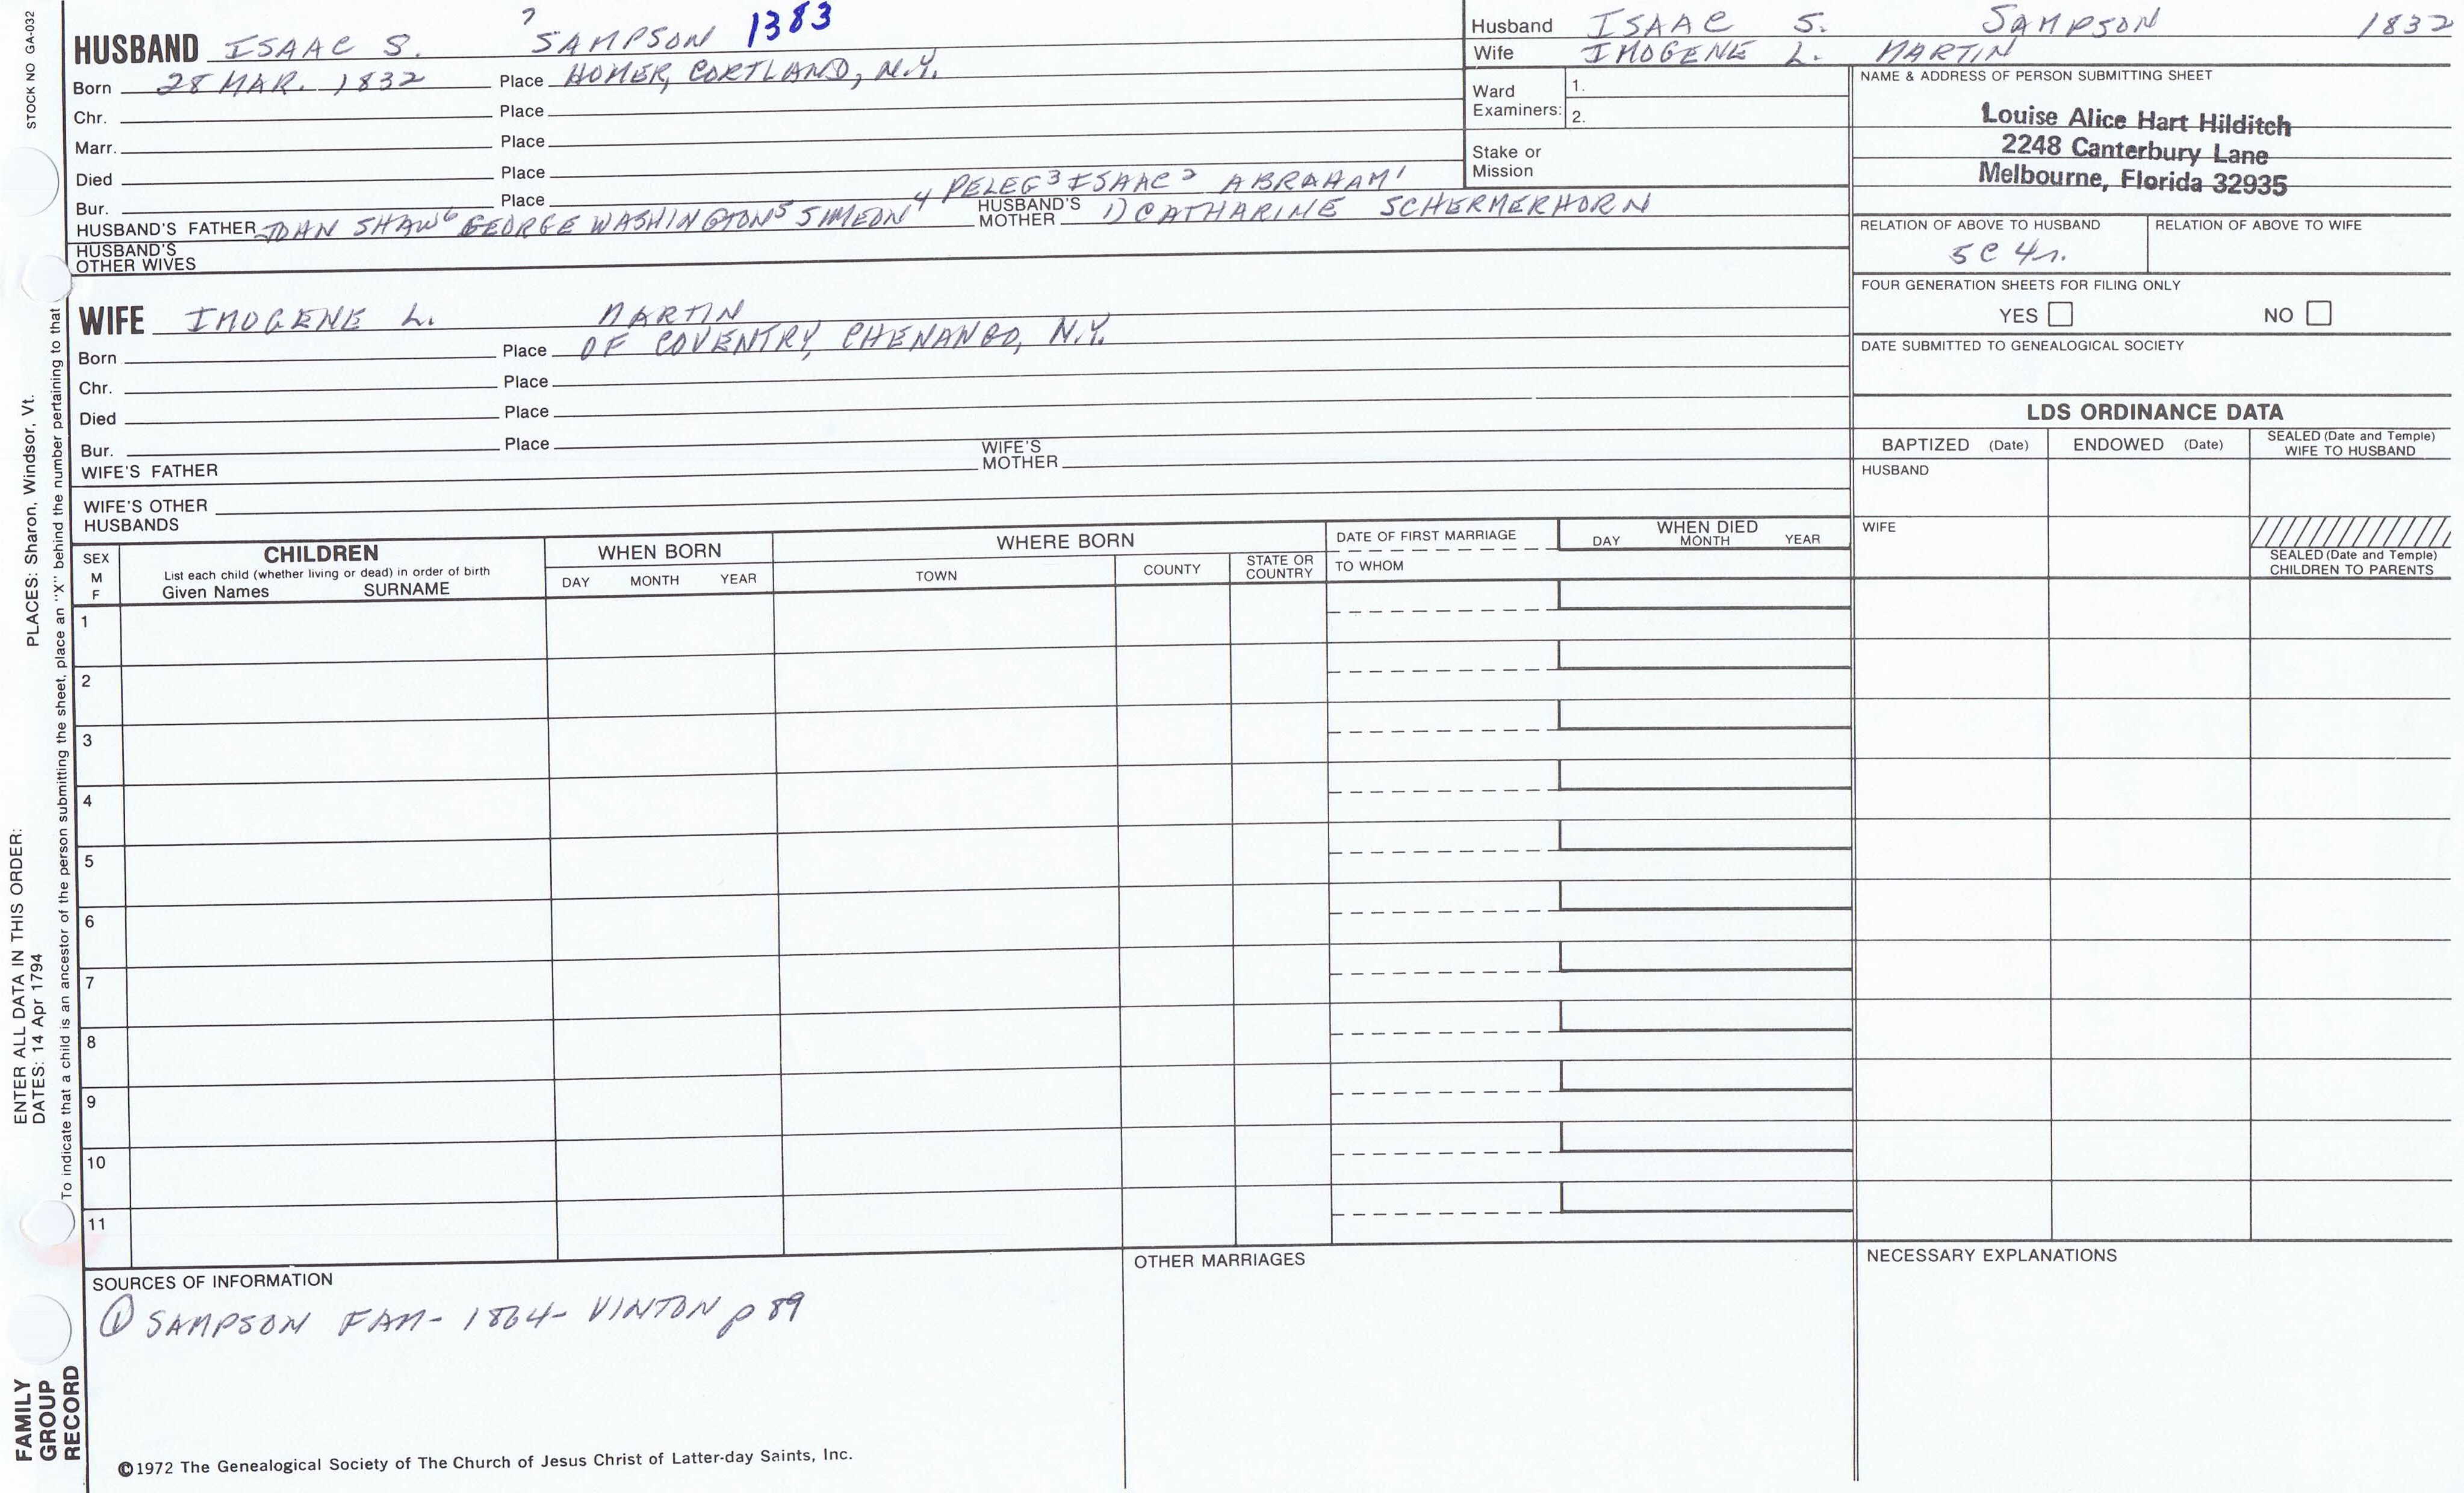 STOCK NO GA-032
PLACES: Sharon, Windsor, Vt.
ENTER ALL DATA IN THIS ORDER:
DATES: 14 Apr 1794
To indicate that a child is an ancestor of the person submitting the sheet, place an "X" behind the number pertaining to that
FAMILY
GROUP
RECORD
HUSBAND ISAAC S. SAMPSON 7 1383
Born 28 MAR. 1832 Place HOMER, CORTLAND, N.Y.
Chr. Place
Marr. Place
Died Place
Bur. Place
HUSBAND'S FATHER SHAW 6 GEORGE WASHINGTON 5 SIMEON 4 PELEG 3 ISAAC 2 ABRAHAM 1
HUSBAND'S MOTHER 1) CATHARINE SCHERMERHORN
HUSBAND'S
OTHER WIVES
WIFE IMOGENE L. MARTIN
Born Place OF COVENTRY, CHENANGO, N.Y.
Chr. Place
Died Place
Bur. Place
WIFE'S FATHER
WIFE'S MOTHER
WIFE'S OTHER
HUSBANDS
Husband ISAAC S. SAMPSON 1832
Wife IMOGENE L. MARTIN
Ward
Examiners:
1.
2.
Stake or
Mission
NAME & ADDRESS OF PERSON SUBMITTING SHEET
Louise Alice Hart Hilditch
2248 Canterbury Lane
Melbourne, Florida 32935
RELATION OF ABOVE TO HUSBAND RELATION OF ABOVE TO WIFE
5C 4r.
FOUR GENERATION SHEETS FOR FILING ONLY
YES NO
DATE SUBMITTED TO GENEALOGICAL SOCIETY
LDS ORDINANCE DATA
BAPTIZED (Date) ENDOWED (Date) SEALED (Date and Temple)
WIFE TO HUSBAND
HUSBAND
WIFE
SEALED (Date and Temple)
CHILDREN TO PARENTS
SEX
M
F
CHILDREN
List each child (whether living or dead) in order of birth
Given Names SURNAME
WHEN BORN
DAY MONTH YEAR
WHERE BORN
TOWN COUNTY STATE OR
COUNTRY
DATE OF FIRST MARRIAGE
TO WHOM
WHEN DIED
DAY MONTH YEAR
1
2
3
4
5
6
7
8
9
10
11
SOURCES OF INFORMATION
① SAMPSON FAM- 1864- VINTON p 89
OTHER MARRIAGES
NECESSARY EXPLANATIONS
©1972 The Genealogical Society of The Church of Jesus Christ of Latter-day Saints, Inc.